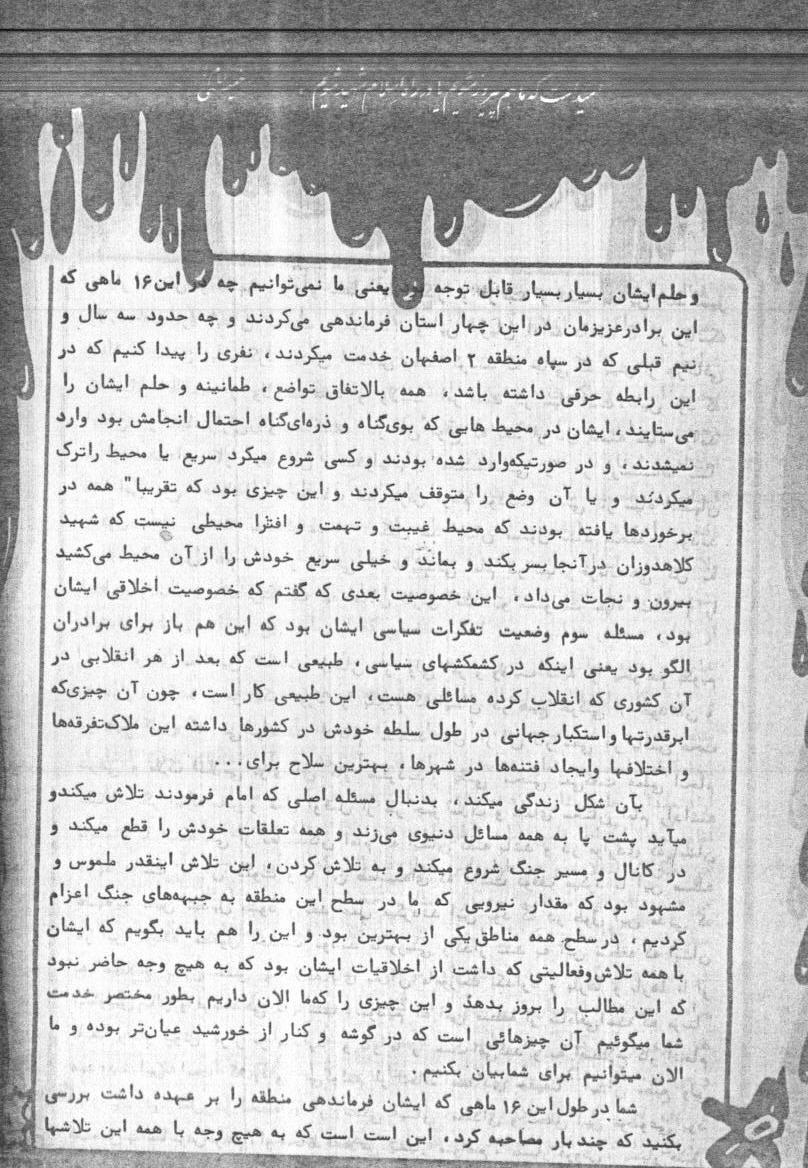 که ما هم پیروز شویم یا در راه اسلام شهید شویم .
و حلم ایشان بسیار بسیار قابل توجه بود یعنی ما نمی‌توانیم چه در این ۱۶ ماهی که
این برادرعزیزمان در این چهار استان فرماندهی می‌کردند و چه حدود سه سال و
نیم قبلی که در سپاه منطقه ۲ اصفهان خدمت میکردند، نفری را پیدا کنیم که در
این رابطه حرفی داشته باشد، همه بالاتفاق تواضع، طمانینه و حلم ایشان را
می‌ستایند، ایشان در محیط هایی که بوی‌گناه و ذره‌ای‌گناه احتمال انجامش بود وارد
نمیشدند، و در صورتیکه‌وارد شده بودند و کسی شروع میکرد سریع یا محیط راترک
میکردند و یا آن وضع را متوقف میکردند و این چیزی بود که تقریبا" همه در
برخوردها یافته بودند که محیط غیبت و تهمت و افترا محیطی نیست که شهید
کلاهدوزان درآنجا بسر بکند و بماند و خیلی سریع خودش را از آن محیط می‌کشید
بیرون و نجات می‌داد، این خصوصیت بعدی که گفتم که خصوصیت اخلاقی ایشان
بود، مسئله سوم وضعیت تفکرات سیاسی ایشان بود که این هم باز برای برادران
الگو بود یعنی اینکه در کشمکشهای سیاسی، طبیعی است که بعد از هر انقلابی در
آن کشوری که انقلاب کرده مسائلی هست، این طبیعی کار است، چون آن چیزی‌که
ابرقدرتها و استکبار جهانی در طول سلطه خودش در کشورها داشته این ملاک‌تفرقه‌ها
و اختلافها وایجاد فتنه‌ها در شهرها، بهترین سلاح برای...
بآن شکل زندگی میکند، بدنبال مسئله اصلی که امام فرمودند تلاش میکندو
میآید پشت پا به همه مسائل دنیوی می‌زند و همه تعلقات خودش را قطع میکند و
در کانال و مسیر جنگ شروع میکند و به تلاش کردن، این تلاش اینقدر ملموس و
مشهود بود که مقدار نیرویی که ما در سطح این منطقه به جبهه‌های جنگ اعزام
کردیم، در سطح همه مناطق یکی از بهترین بود و این را هم باید بگویم که ایشان
با همه تلاش وفعالیتی که داشت از اخلاقیات ایشان بود که به هیچ وجه حاضر نبود
که این مطالب را بروز بدهد و این چیزی را که‌ما الان داریم بطور مختصر خدمت
شما میگوئیم آن چیزهائی است که در گوشه و کنار از خورشید عیان‌تر بوده و ما
الان میتوانیم برای شمابیان بکنیم.
شما در طول این ۱۶ ماهی که ایشان فرماندهی منطقه را بر عهده داشت بررسی
بکنید که چند بار مصاحبه کرد، این است است که به هیچ وجه با همه این تلاشها